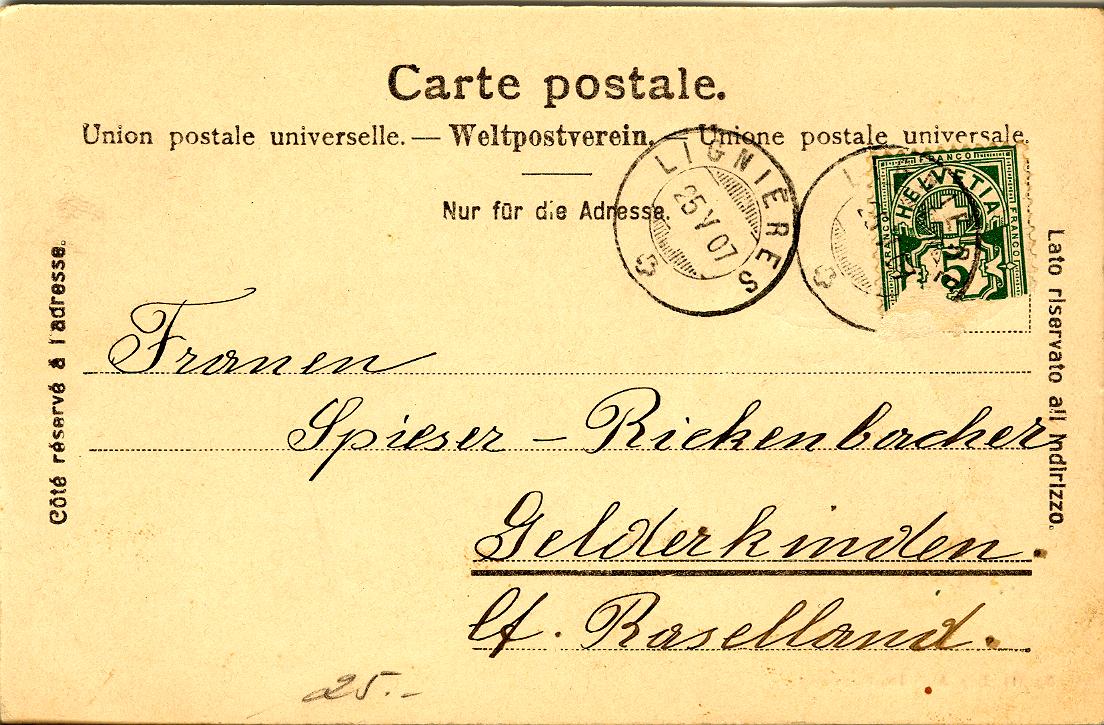 Carte postale.
Union postale universelle. — Weltpostverein. — Unione postale universale.
Nur für die Adresse.
LIGNIERES
25 V 07
FRANCO
HELVETIA
FRANCO
FRANCO
5
Côté réservé à l'adresse.
Lato riservato all indirizzo.
Franen
Spieser - Rickenbacher
Gelderkinden.
Ct. Baselland.
25.-